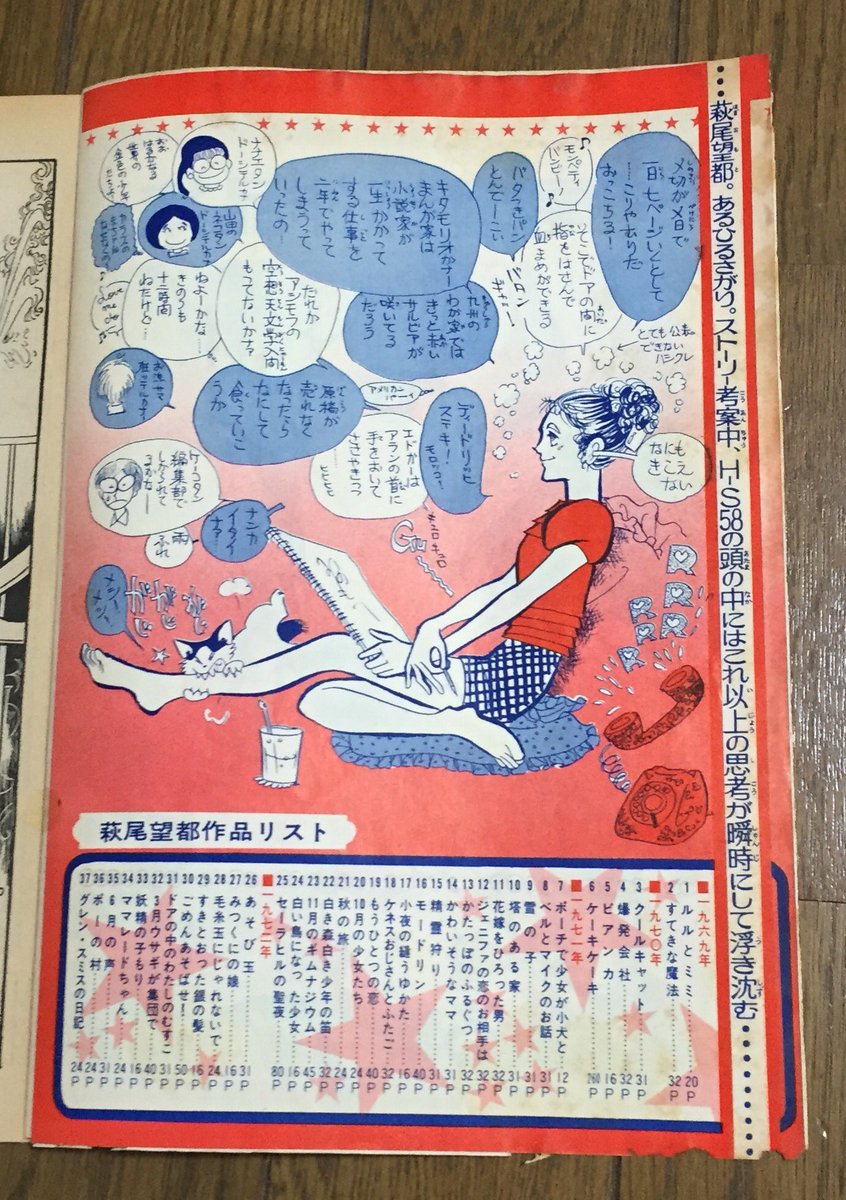 萩尾望都。あるひるさがり。ストーリー考案中、H-S58の頭の中にはこれ以上の思考が瞬時にして浮き沈む
〆切が〆日で
一日七ページいくとして
……こりゃむりだ
おっこちる！
♪モンペティ
バンビーノ♪
そこでドアの間に
指をはさんで
血まめができる
とても公表
できない
ハシクレ
パタつきパン
とんでーこい
バタン
ギャー！
キタモリオがナー
まんが家は
小説家が
一生かかって
する仕事を
二年でやって
しまうって
いったの
九州の
わが家では
きっと赤い
サルビアが
咲いてる
だろう
ナナエタン
ドーシテルカナ
山田の
ネコタン
ドーシテルカナ
だれか
アシモフの
空想天文学入門
もってないかナァ
ねよーかな……
きのうも
十二時間
ねたけど…
原稿が
売れなく
なったら
なにして
食っていこ
うか
アメリカンパーイ
ディードリッヒ
ステキ！
エドガーは
アランの首に
手をおいて
ささやきっつ
ヒヒヒ
なにも
きこえ
ない
編集部で
しかられて
るかなー
雨
ふれ
ナンカ
イタイ
ナァ
メシー
メシー
ガジガジガジ
キュロキュロ
Gu
R R R R R R
萩尾望都作品リスト
■一九六九年
1 ルルとミミ 20P
2 すてきな魔法 32P
■一九七〇年
3 クールキャット 31P
4 爆発会社 32P
5 ビアンカ 16P
6 ケーキケーキ 260P
■一九七一年
7 ポーチで少女が小犬と 12P
8 ベルとマイクのお話 31P
9 雪の子 31P
10 塔のある家 31P
11 花嫁をひろった男 32P
12 ジェニファの恋のお相手は 32P
13 かたっぽのふるぐつ 32P
14 かわいそうなママ 31P
15 精霊狩り 31P
16 モードリン 40P
17 小夜の縫うゆかた 16P
18 ケネスおじさんとふたご 32P
19 もうひとつの恋 40P
20 10月の少女たち 24P
21 秋の旅 24P
22 白き森白き少年の笛 32P
23 11月のギムナジウム 45P
24 白い鳥になった少女 16P
25 セーラヒルの聖夜 80P
■一九七二年
26 あそび玉 31P
27 みつくにの娘 16P
28 毛糸玉にじゃれないで 24P
29 すきとおった銀の髪 16P
30 ごめんあそばせ！ 50P
31 ドアの中のわたしのむすこ 31P
32 3月ウサギが集団で 40P
33 妖精の子もり 16P
34 ママレードちゃん 24P
35 6月の声 31P
36 ポーの村 24P
37 グレン・スミスの日記 24P